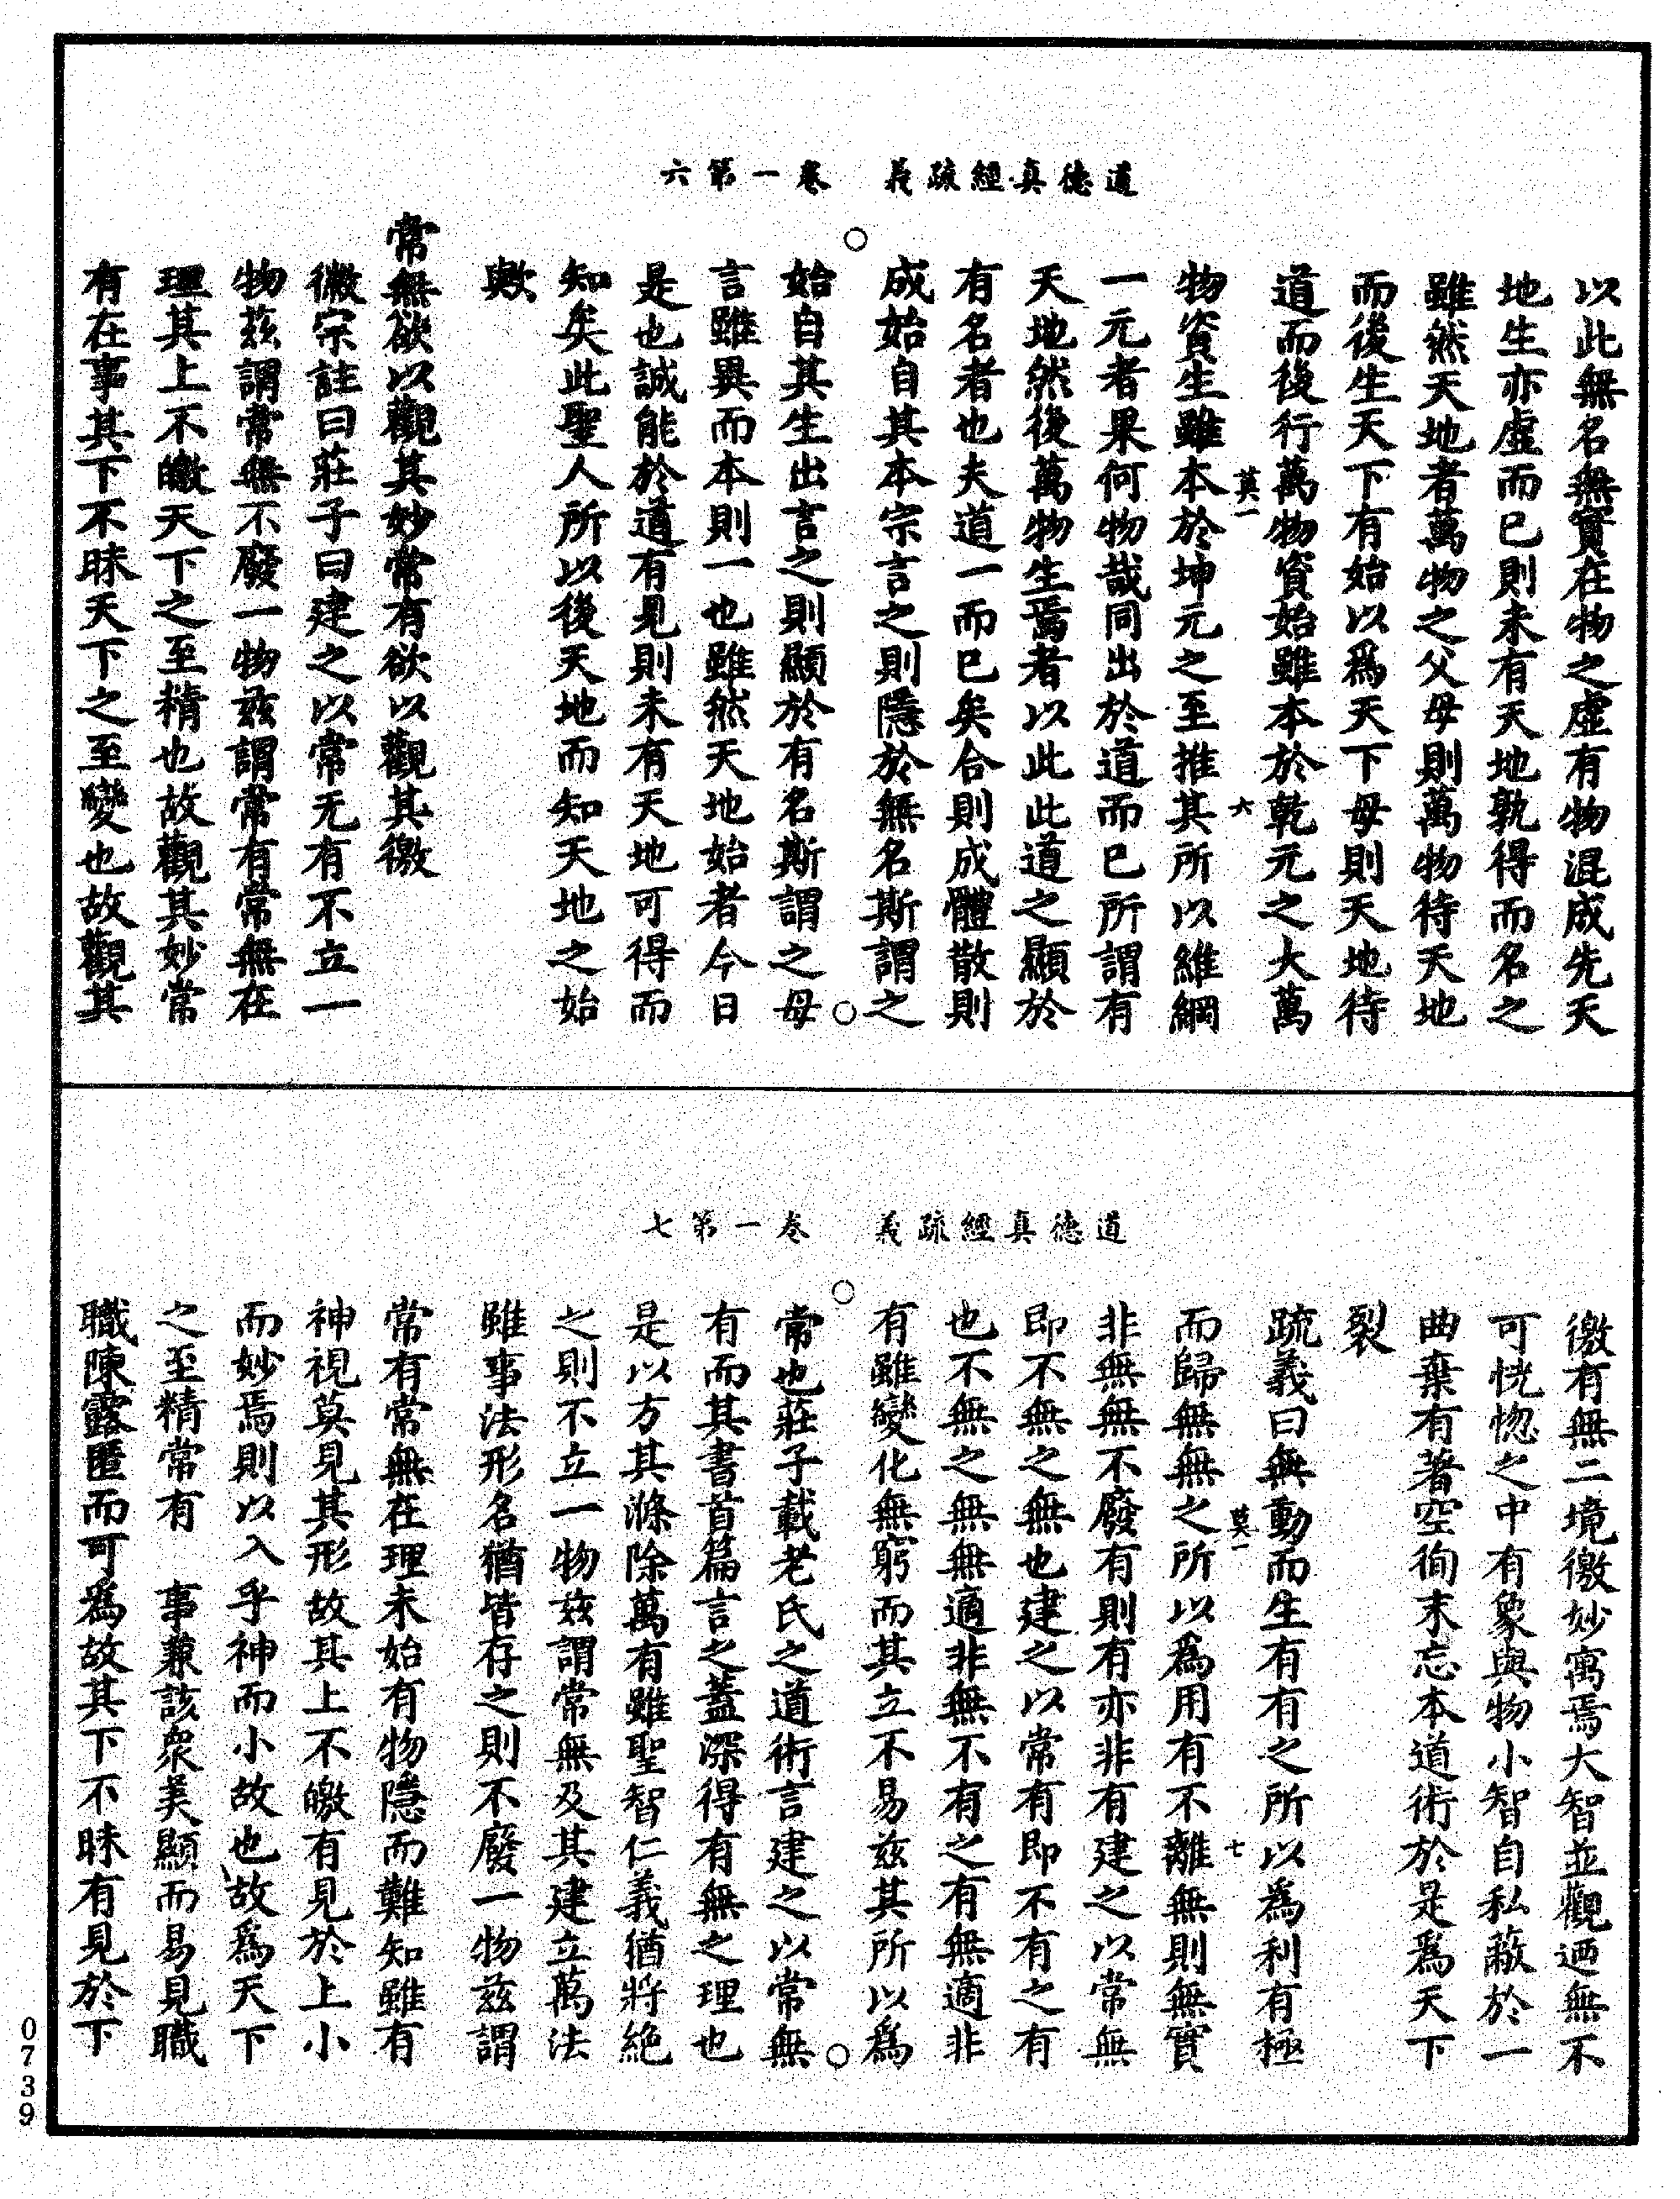 道德真經疏義　卷一第六
以此無名無實在物之虛有物混成先天
地生亦虛而已則未有天地孰得而名之
雖然天地者萬物之父母則萬物待天地
而後生天下有始以為天下母則天地待
道而後行萬物資始雖本於乾元之大萬
莫一　六
物資生雖本於坤元元之至推其所以維綱
一元者果何物哉同出於道而已所謂有
天地然後萬物生焉者以此此道之顯於
有名者也夫道一而已矣合則成體散則
成始自其本宗言之則隱於無名斯謂之
始自其生出言之則顯於有名斯謂之母
言雖異而本則一也雖然天地始者今日
是也誠能於道有見則未有天地可得而
知矣此聖人所以後天地而知天地之始
歟
常無欲以觀其妙常有欲以觀其徼
徽宗註曰莊子曰建之以常无有不立一
物茲謂常無不廢一物茲謂常有常無在
理其上不皦天下之至精也故觀其妙常
有在事其下不昧天下之至變也故觀其
道德真經疏義　卷一第七
徼有無二境徼妙寓焉大智並觀迺無不
可恍惚之中有象與物小智自私蔽於一
曲棄有著空徇末忘本道術於是為天下
裂
疏義曰無動而生有有之所以為利有極
莫一　七
而歸無無之所以為用有不離無則無實
非無無不廢有則有亦非有建之以常無
即不無之無也建之以常有即不有之有
也不無之無無適非無不有之有無適非
有雖變化無窮而其立不易茲其所以為
常也莊子載老氏之道術言建之以常無
有而其書首篇言之蓋深得有無之理也
是以方其滌除萬有雖聖智仁義猶將絕
之則不立一物茲謂常無及其建立萬法
雖事法形名猶皆存之則不廢一物茲謂
常有常無在理未始有物隱而難知雖有
神視莫見其形故其上不皦有見於上小
而妙焉則以入乎神而小故也故為天下
之至精常有　事兼該眾美顯而易見職
職陳露匿而可為故其下不昧有見於下
0739